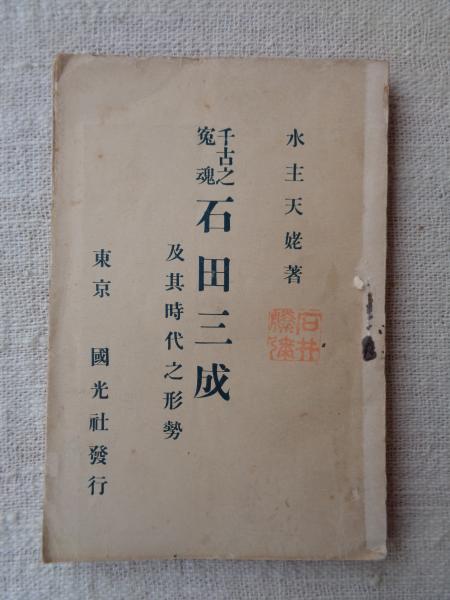 水主天姥著
千古之
寃魂
石田三成
及其時代之形勢
東京 國光社發行